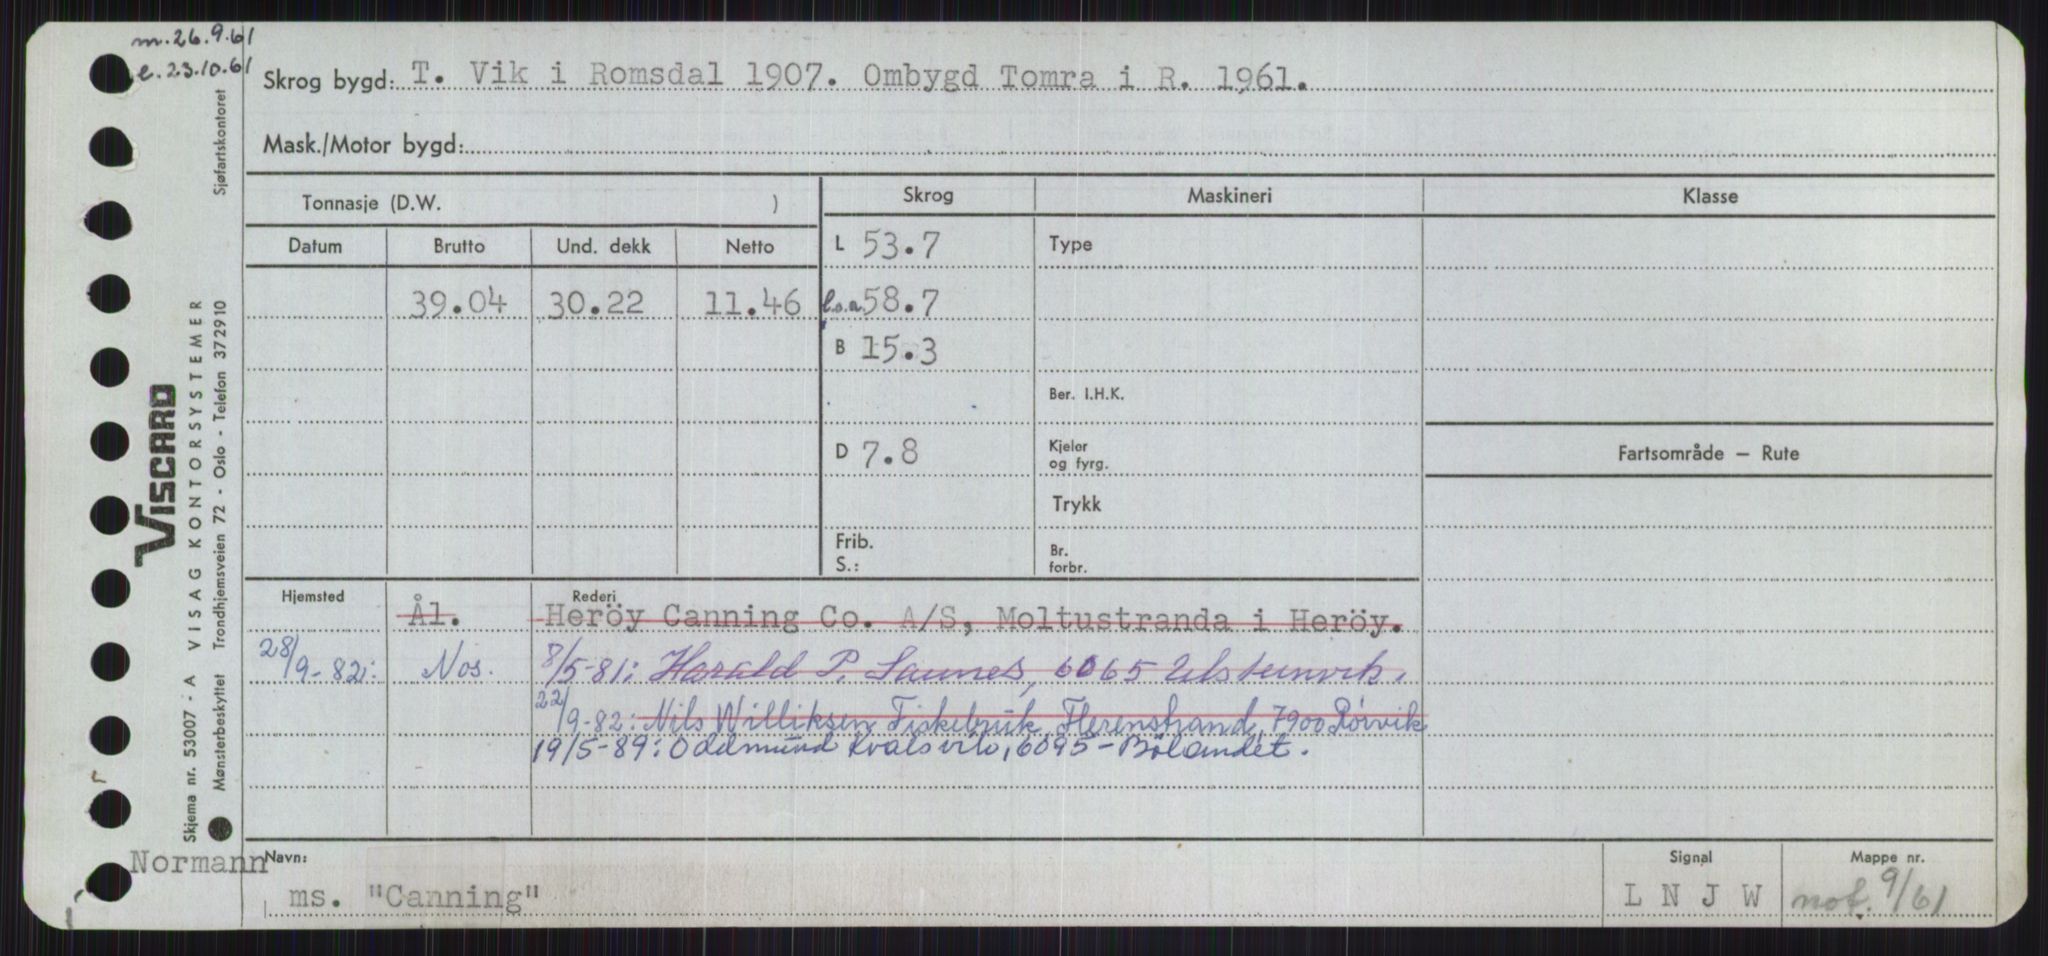 m. 26.9.61
e. 23.10.61
Skrog bygd: T. Vik i Romsdal 1907. Ombygd Tomra i R. 1961.
Mask./Motor bygd:
Tonnasje (D.W. )
Skrog
Maskineri
Klasse
Datum
Brutto
Und. dekk
Netto
L 53.7
Type
39.04
30.22
11.46
l.o.a. 58.7
B 15.3
Ber. I.H.K.
D 7.8
Kjeler
og fyrg.
Fartsområde — Rute
Trykk
Frib.
S.:
Br.
forbr.
Hjemsted
Ål.
Rederi
Heröy Canning Co. A/S, Moltustranda i Heröy.
28/9-82: Nos. 8/5-81: Harald P. Saunes, 6065 Ulsteinvik.
22/9-82: Nils Williksen Fiskebruk, 7900 Rørvik
19/5-89: Oddmund Kvalsvik, 6095 - Bølandet.
Normann
Navn:
ms. "Canning"
Signal
L N J W
Mappe nr.
not. 9/61
VISCARD
Skjema nr. 53007 - A VISAG KONTORSYSTEMER
Mønsterbeskyttet Trondhjemsveien 72 - Oslo - Telefon 372910 Sjøfartskontoret